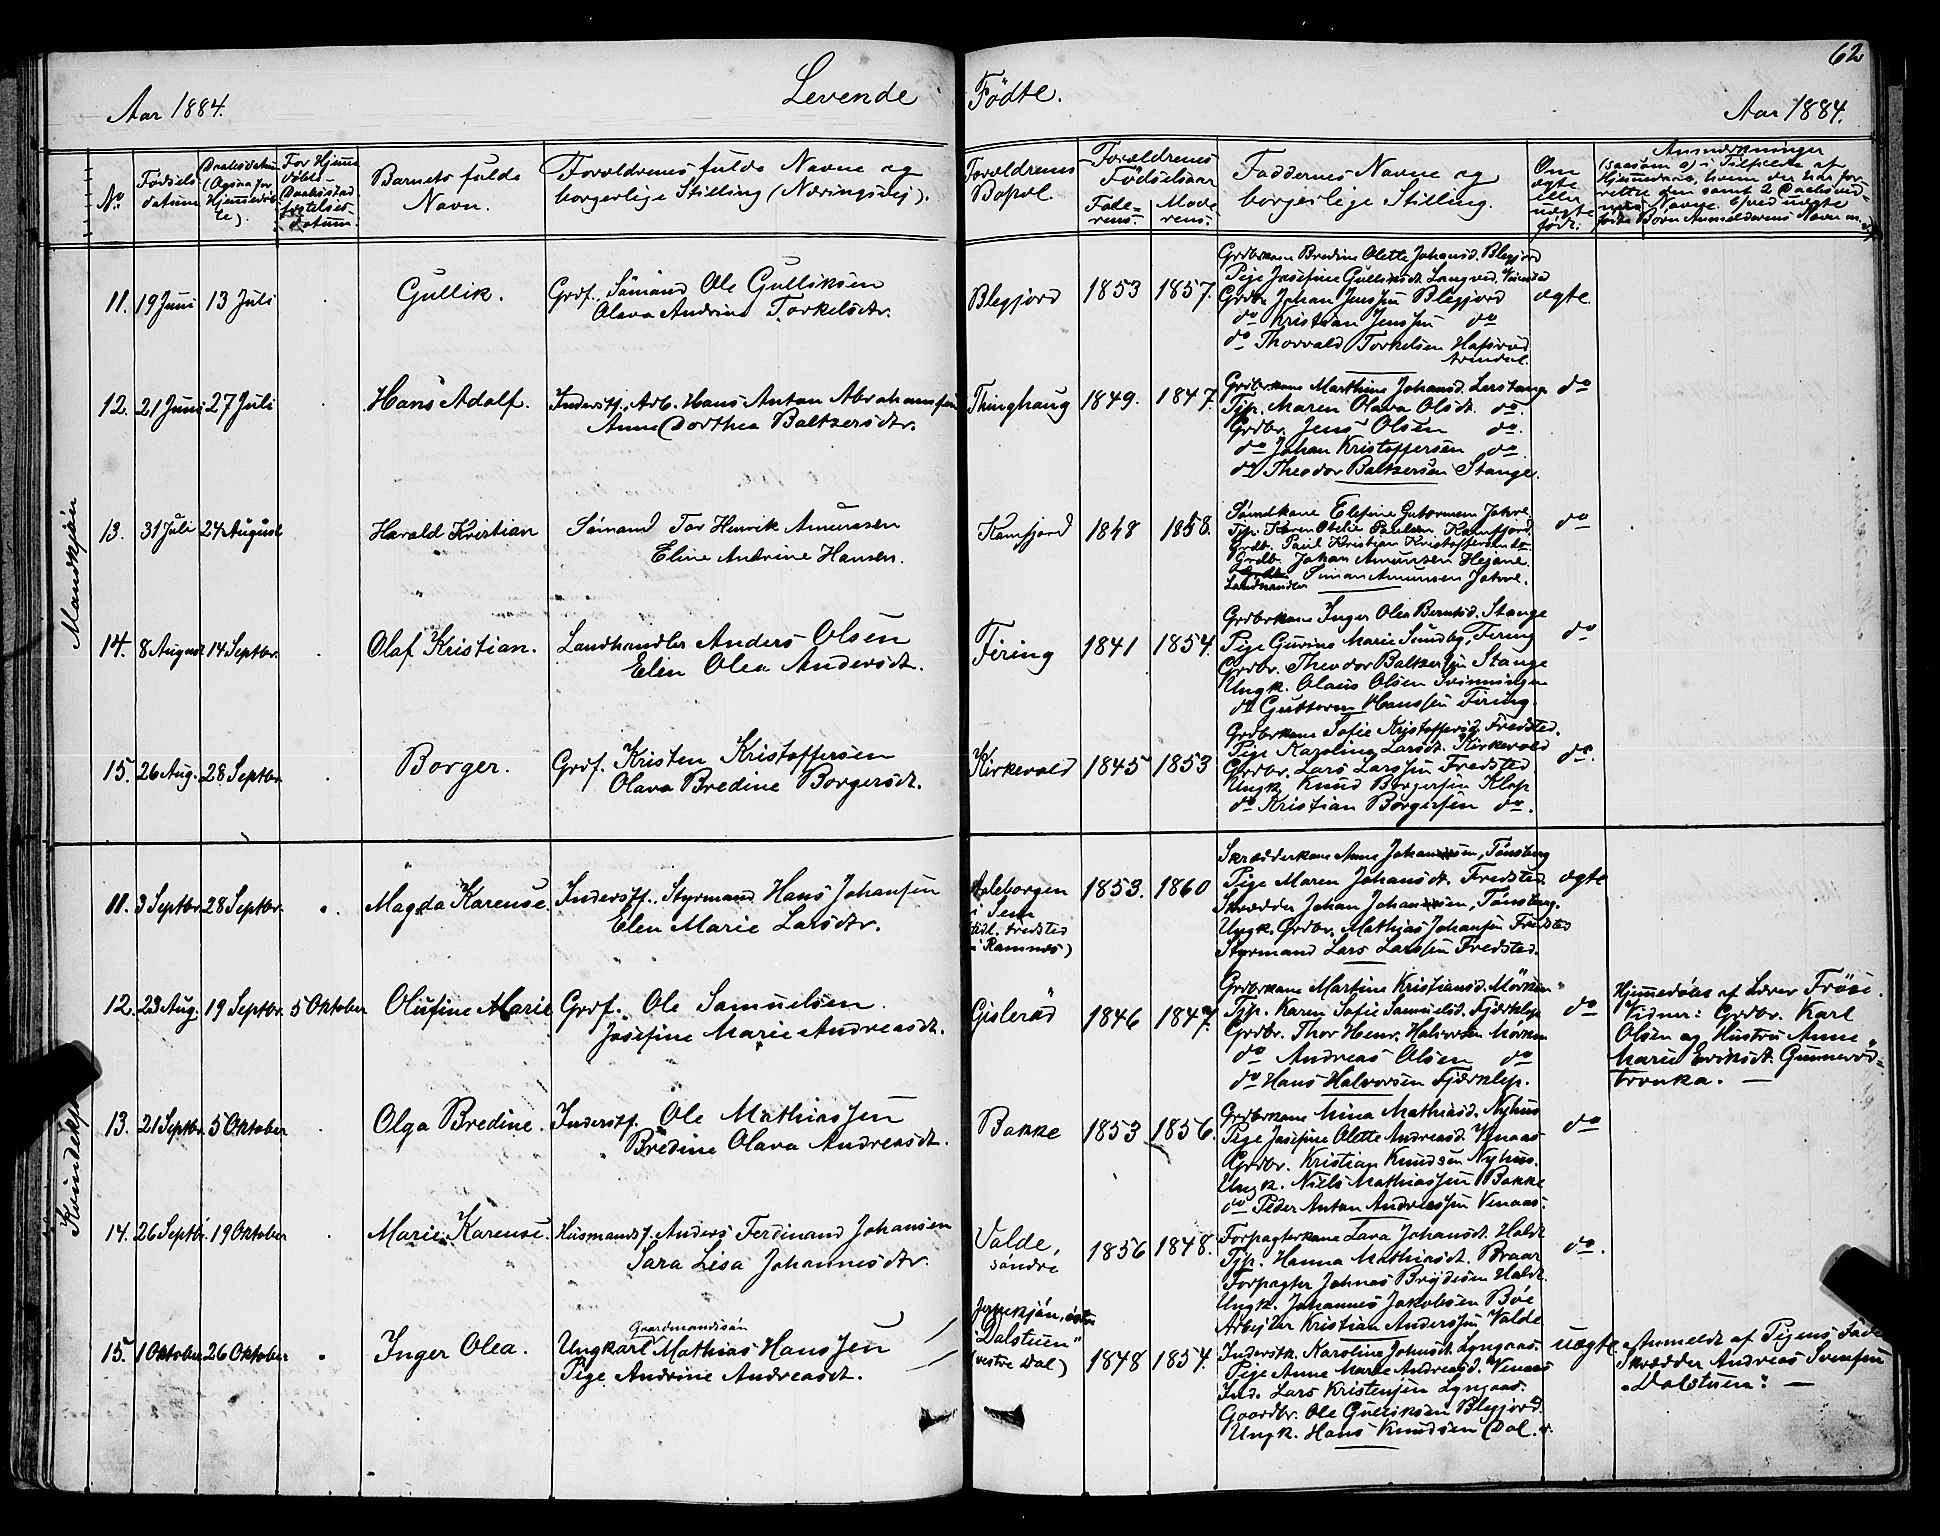 62
Levende Födte.
Aar 1884.
Aar 1884.
No.
Födsels
datum
Daabsdatum
(Ogsaa for
Hjemmedöb-
te).
For Hjemme
döbte
Daabsstad
fæstelses-
datum.
Barnets fulde
Navn.
Forældrenes fulde Navne og
borgerlige Stilling (Næringsvej).
Forældrenes
Bopæl
Forældrenes
Födselsaar
Fade-
rens.
Mode
rens.
Faddernes Navne og
borgerlige Stilling.
Om
ægte
eller
uægte
født.
Anmærkninger
Mandkjön
11. 19 Juni 13 Juli
Gullik.
Grdf. Sömand Ole Gulliksen
Olava Andrine Torkelsdtr.
Blegjord 1853 1857.
Grdbrkone Bredine Olette Johansd. Blegjord
Pige Josefine Gulliksdt. Langved
Grdbr. Johan Jenssen Blegjord
do Kristian Jenssen do
do Thorvald Torkelsen
ægte
12. 21 Juni 27 Juli
Hans Adolf.
Inderstf. Arb. Hans Anton Abrahamsen
Anne Dorthea Baltzersdtr.
Thinghaug 1849. 1847
Grdbrkone Marthine Johansd. Lerstange
Tjp. Maren Olava Olsdt. do.
Grdbr. Jens Olsen do.
do Johan Kristoffersen do
do Theodor Baltzersen Stange.
do
13. 31 Juli 24 August
Harald Kristian
Sömand Tor Henrik Amundsen
Eline Andrine Hansen.
Kamfjord 1848 1858.
Sömdkone Elefine Guttormsen
Tjp. Karen Otelie Paulsen Kamfjord.
Grdb. Paul Kristian Kristoffersen do
Grdb. Johan Amundsen Hejane.
Landhandler Simon Amundsen
do
14. 8 August 14 Septbr.
Olaf Kristian.
Landhandler Anders Olsen
Elen Olea Andersdt.
Firing 1841 1854.
Grdbrkone Inger Olea Berntsd. Stange
Pige Gurine Marie Sundby, Firing
Grdbr. Theodor Baltzersen Stange
Ungk. Olaus Olsen Svinningen
do Guttorm Hanssen Firing.
do
15. 26 Aug. 28 Septbr.
Borger.
Grdf. Kristen Kristoffersen
Olava Bredine Borgersdt.
Kirkevold 1845 1853
Grdbrkone Sofie Kristoffersd. Fredsted.
Pige Karoline Larsdt. Kirkevold
Grdbr. Lars Larssen Fredsted
Ungk. Knud Borgersen Klop
do Kristian Borgersen do.
do.
Kvindekjön
11. 3 Septbr. 28 Septbr.
Magda Karense.
Inderstf. Styrmand Hans Johansen
Elen Marie Larsdtr.
i Sem
fredsted
i Ramnæs)
1853. 1860
Skrædderkone Anne Johansen, Tönsberg
Pige Maren Johansdt. Fredsted.
Skrædder Johan Johansen, Tönsberg.
Ungk. Grdbr. Mathias Johansen Fredsted
Styrmand Lars Larssen Fredsted.
ægte
12. 23 Aug. 19 Septbr. 5 Oktober
Olufine Marie
Grdf. Ole Samuelsen
Josefine Marie Andreasdt.
Gisleröd 1846 1847.
Grdbrkone Martine Kristiansd. Mörken
Tjp. Karen Sofie Samuelsd. Fjærklep
Grdbr. Thor Henr. Halvorsen Mörken
do Andreas Olsen do
do Hans Halvorsen Fjærklep.
do
Hjemmedöbt af Lærer Fröse.
Vidner: Grdbr. Karl
Olsen og Hustru Anne
Marie Eriksdt. Gunneröd-
tronka. —
13. 21 Septbr. 5 Oktober
Olga Bredine.
Inderstf. Ole Mathiassen
Bredine Olava Andreasdt.
Bakke 1853 1856.
Grdbrkone Mina Mathiasd. Nyhus
Pige Josefine Olette Andreasd. Venaas
Grdbr. Kristian Knudsen Nyhus.
Ungk. Niels Mathiassen Bakke
do Peder Anton Andreassen Venaas.
do
14. 26 Septbr. 19 Oktober
Marie Karense.
Husmandsf. Anders Ferdinand Johansen
Sara Lisa Johannesdtr.
Valde,
söndre
1856 1848.
Forpagterkone Lava Johansdt. Holdt
Tjp. Hanna Mathiasdt. Braar
Forpagter Johnas Holdt.
Ungk. Johannes Jakobsen Böe
Arbejder Kristian Anderssen Valde
do.
15. 1 Oktober 26 Oktober
Inger Olea.
Gaardmandssön
Ungkarl Mathias Hanssen
Pige Andrine Andreasdt.
Jernskjön, östre
"Dalstuen"
(vestre Dal)
1848 1854.
Inderstk. Karoline Johnsdt. Lyngaas.
Pige Anne Marie Andreasd. Venaas
Ind. Lars Kristensen Lyngaas.
Gaardbr. Ole Gulliksen Blegjord.
Ungk. Hans Knudsen Dal. v.
uægte
Anmeldt af Pigens Fader
Skrædder Andreas Svensen
"Dalstuen". —